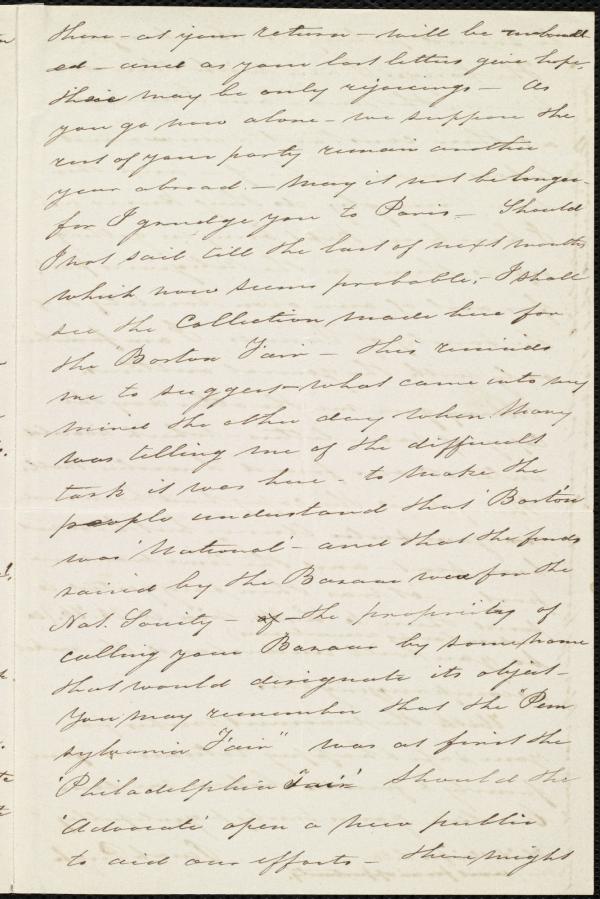 there - at your return - will be unbound
ed - and as your last letters give hope,
there may be only rejoicings - As
you go now alone - we suppose the
rest of your party remain another
year abroad. - May it not be longer
for I grudge you to Paris - Should
I not sail till the last of next month
which now seems probable, - I shall
see the Collection made here for
the Boston Fair - This reminds
me to suggest what came into my
mind the other day when Mary
was telling me of the difficult
task it was here - to make the
people understand that 'Boston'
was 'National' - and that the funds
raised by the Bazaar was for the
Nat. Society - of the propriety of
calling your Bazaar by some name
that would designate its object -
You may remember that the "Penn
sylvania Fair" was at first the
'Philadelphia Fair' Should the
'Advocate' open a new public
to aid our efforts - there might